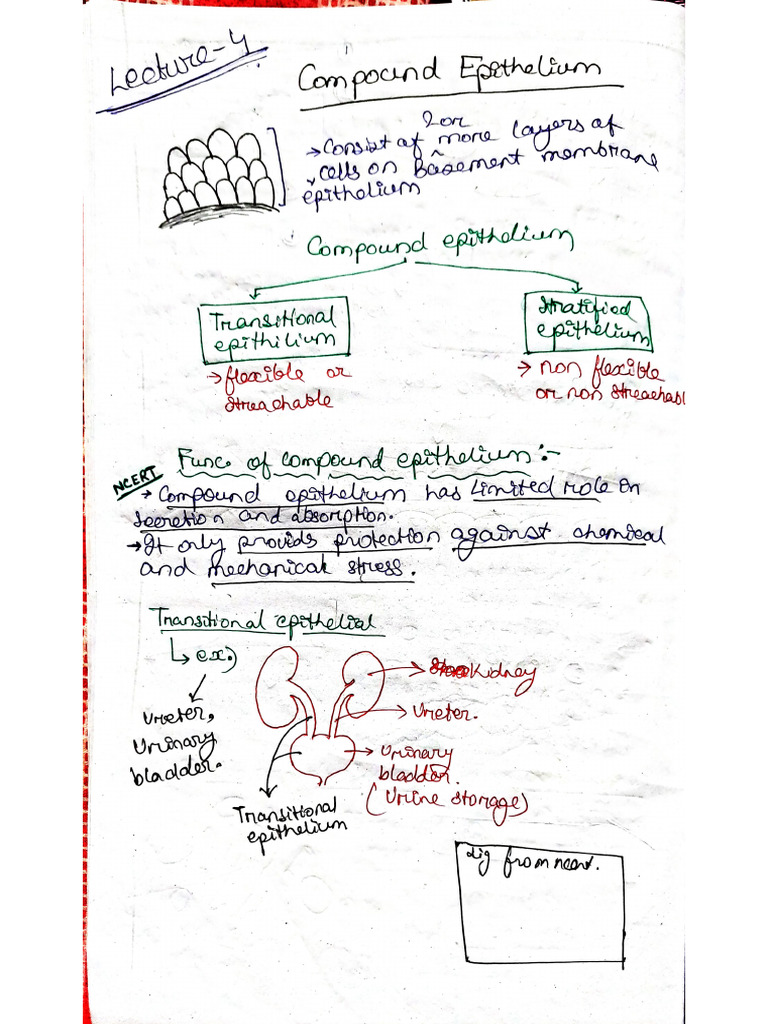 Lecture-4
Compound Epithelium
2 or
→ Consist of more layers of
cells on Basement membrane
epithelium
Compound epithelium
Transitional
epithilium
Stratified
epithelium
→ flexible or
streachable
→ non flexible
or non streachabl
Func. of compound epithelium:-
NCERT
→ Compound epithelium has Limited role in
secretion and absorption.
→ It only provids protection against chemical
and mechanical stress.
Transitional epithelial
↳ ex.)
Ureter,
Urinary
bladder.
Kidney
→ Ureter.
→ Urinary
bladder.
(Urine storage)
Transitional
epithelium
dig from ncert.